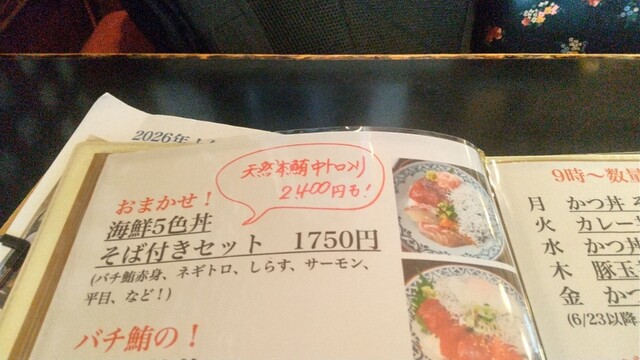 2026年
天然本鮪中トロ入り
2,400円も!
おまかせ!
海鮮5色丼
そば付きセット 1750円
(バチ鮪赤身、ネギトロ、しらす、サーモン、
平目、など!)
バチ鮪の!
9時~数量
月 かつ丼
火 カレー
水 かつ丼
木 豚玉
金 かつ
(6/23以降